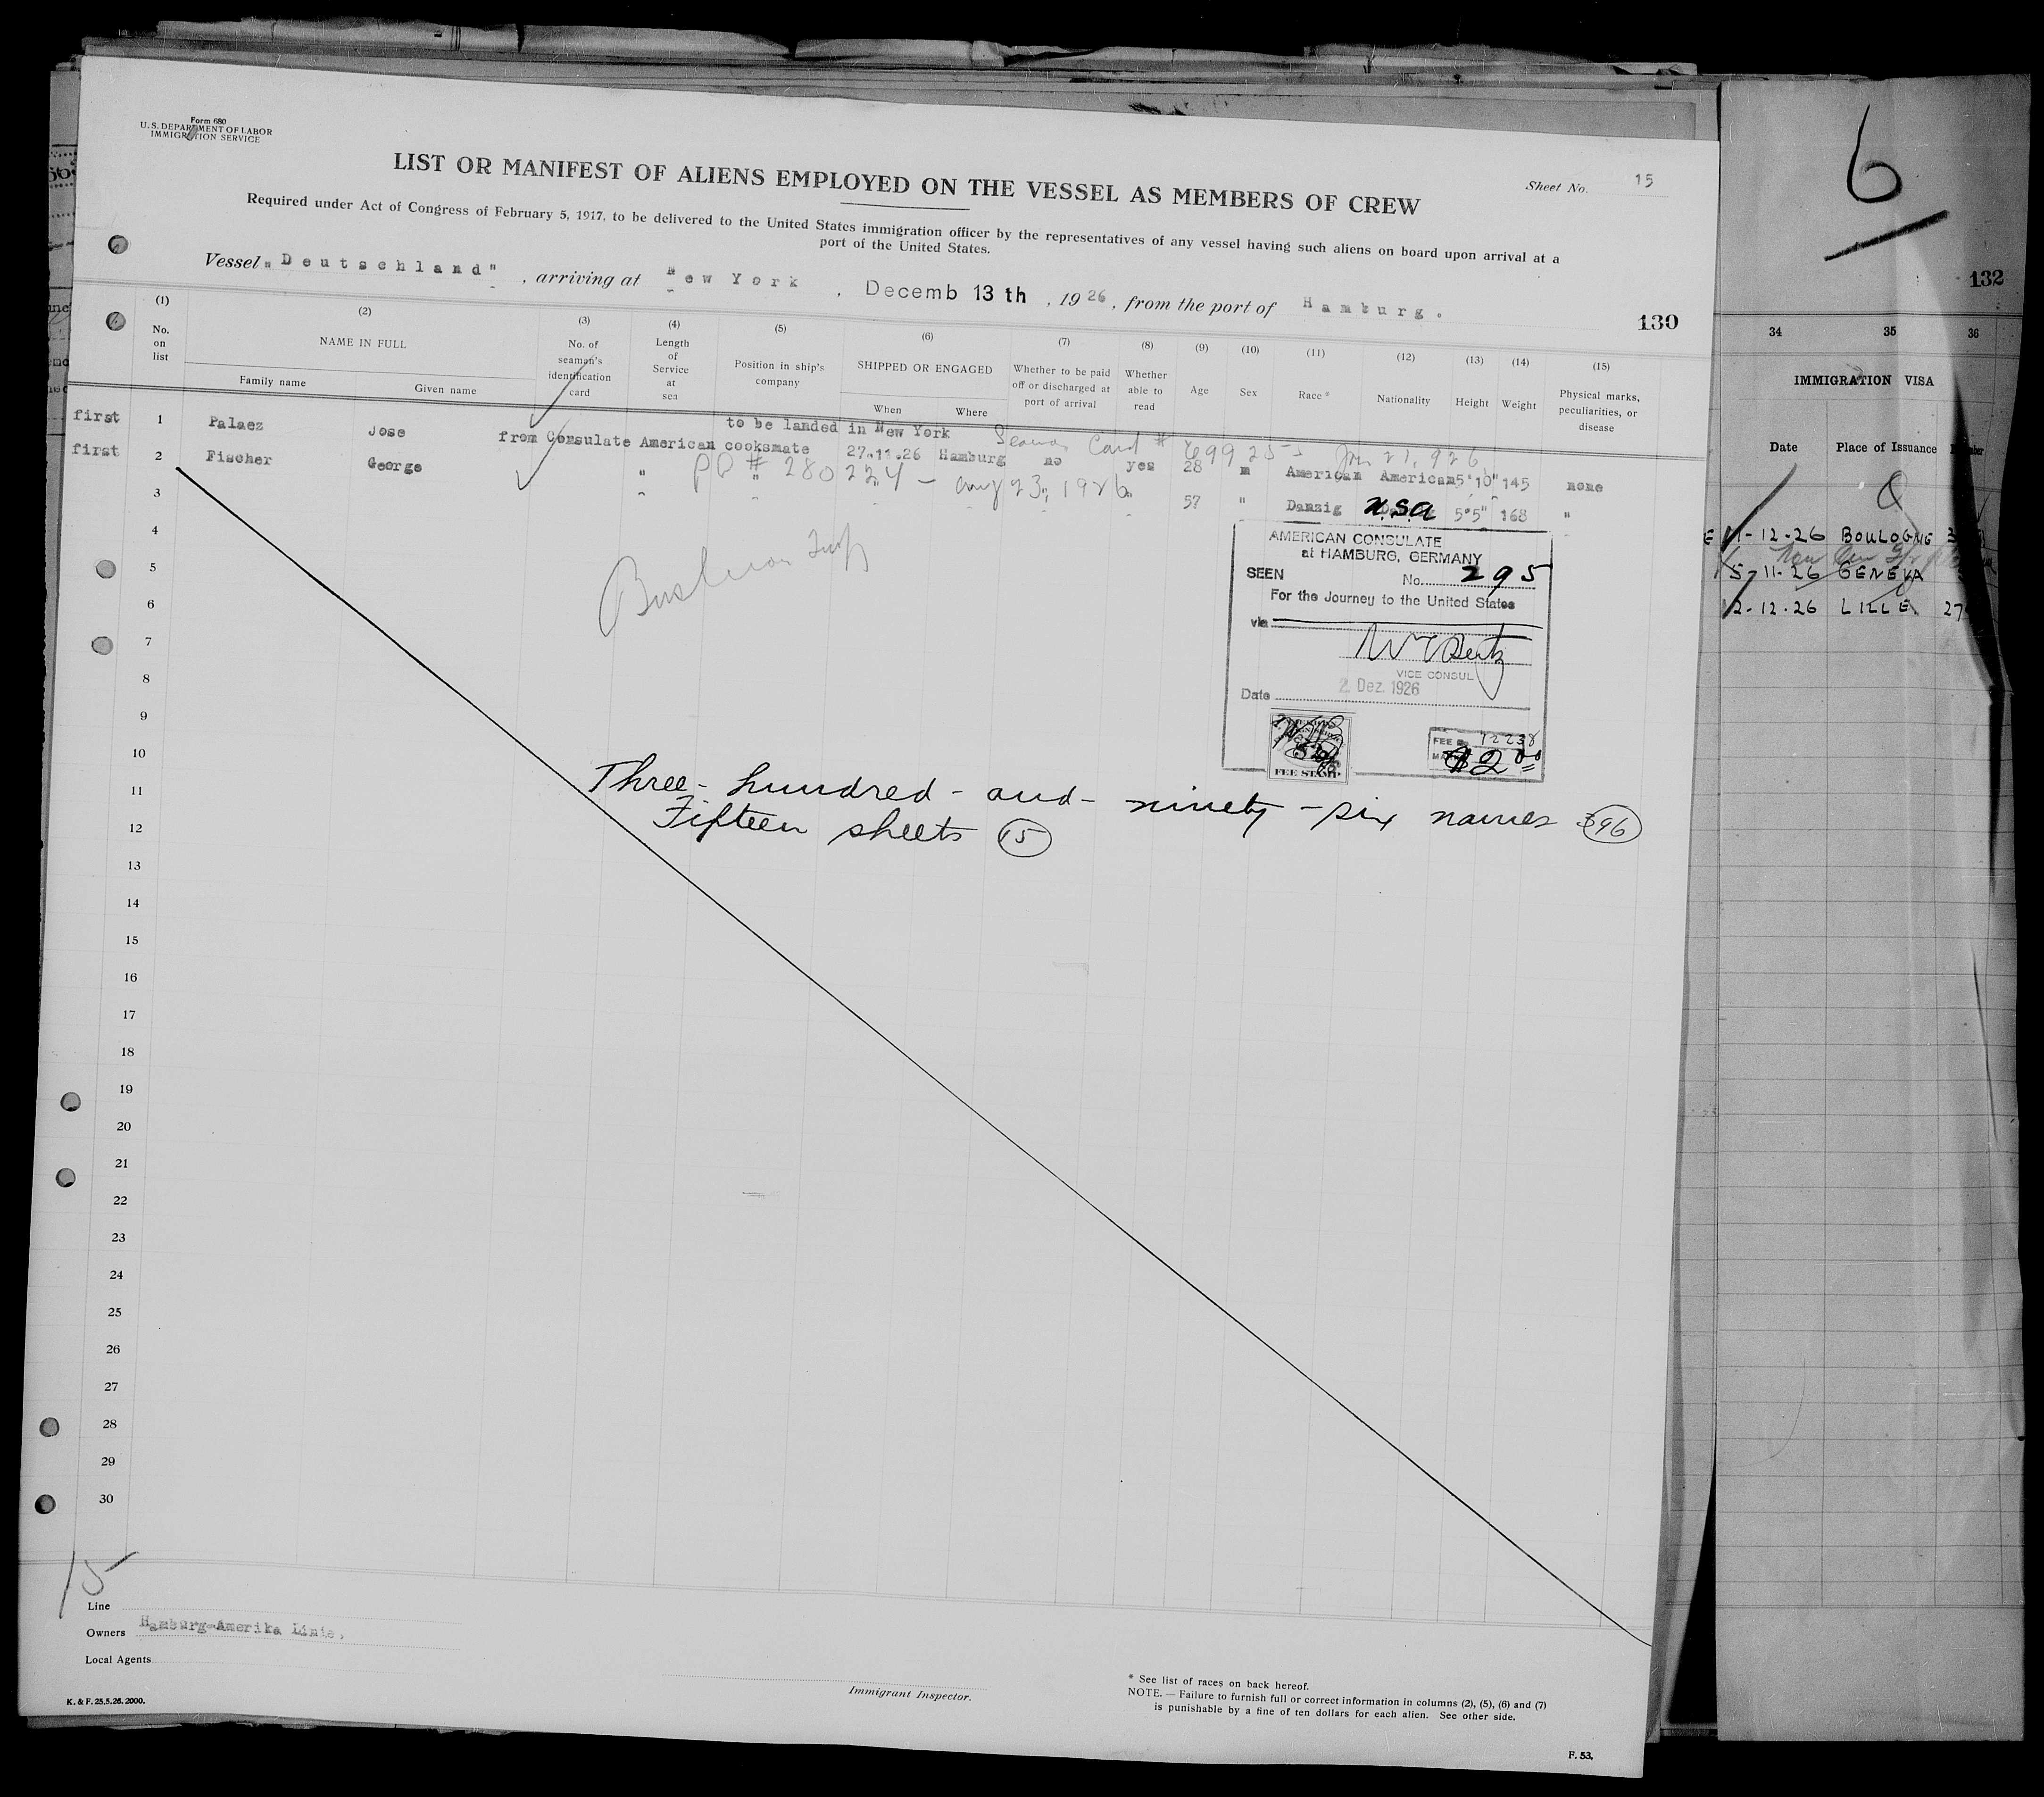 Form 680
U. S. DEPARTMENT OF LABOR
IMMIGRATION SERVICE
LIST OR MANIFEST OF ALIENS EMPLOYED ON THE VESSEL AS MEMBERS OF CREW
Sheet No. 15
Required under Act of Congress of February 5, 1917, to be delivered to the United States immigration officer by the representatives of any vessel having such aliens on board upon arrival at a
port of the United States.
Vessel "Deutschland", arriving at New York, Decemb 13 th, 1926, from the port of Hamburg.
130
(1) (2) (3) (4) (5) (6) (7) (8) (9) (10) (11) (12) (13) (14) (15)
No. on list
NAME IN FULL
Family name Given name
No. of seaman's identification card
Length of Service at sea
Position in ship's company
SHIPPED OR ENGAGED
When Where
Whether to be paid off or discharged at port of arrival
Whether able to read
Age
Sex
Race*
Nationality
Height
Weight
Physical marks, peculiarities, or disease
to be landed in New York
first 1 Palaez Jose from Consulate American cooksmate 27.11.26 Hamburg no yes 28 m American American 5'10" 145 none
Card # 69925 Jan 21, 926
first 2 Fischer George " " 57 " Danzig U.S.A 5'5" 168 "
PP # 280224 - Aug 23, 1926
3
4
5
6
7
8
9
10
11
12
13
14
15
16
17
18
19
20
21
22
23
24
25
26
27
28
29
30
AMERICAN CONSULATE
at HAMBURG, GERMANY
SEEN No. 295
For the Journey to the United States
via
VICE CONSUL
Date 2. Dez. 1926
FEE STAMP
FEE No. 12238
$2.00
Three-hundred-and-ninety-six names 396
Fifteen sheets 15
15
Line
Owners Hamburg-Amerika Linie,
Local Agents
Immigrant Inspector.
* See list of races on back hereof.
NOTE. — Failure to furnish full or correct information in columns (2), (5), (6) and (7)
is punishable by a fine of ten dollars for each alien. See other side.
K. & F. 25.5.26. 2000.
F. 53.
6
132
34 35 36
IMMIGRATION VISA
Date Place of Issuance
1-12-26 BOULOGNE
5-11-26 GENEVA
2-12-26 LILLE 27